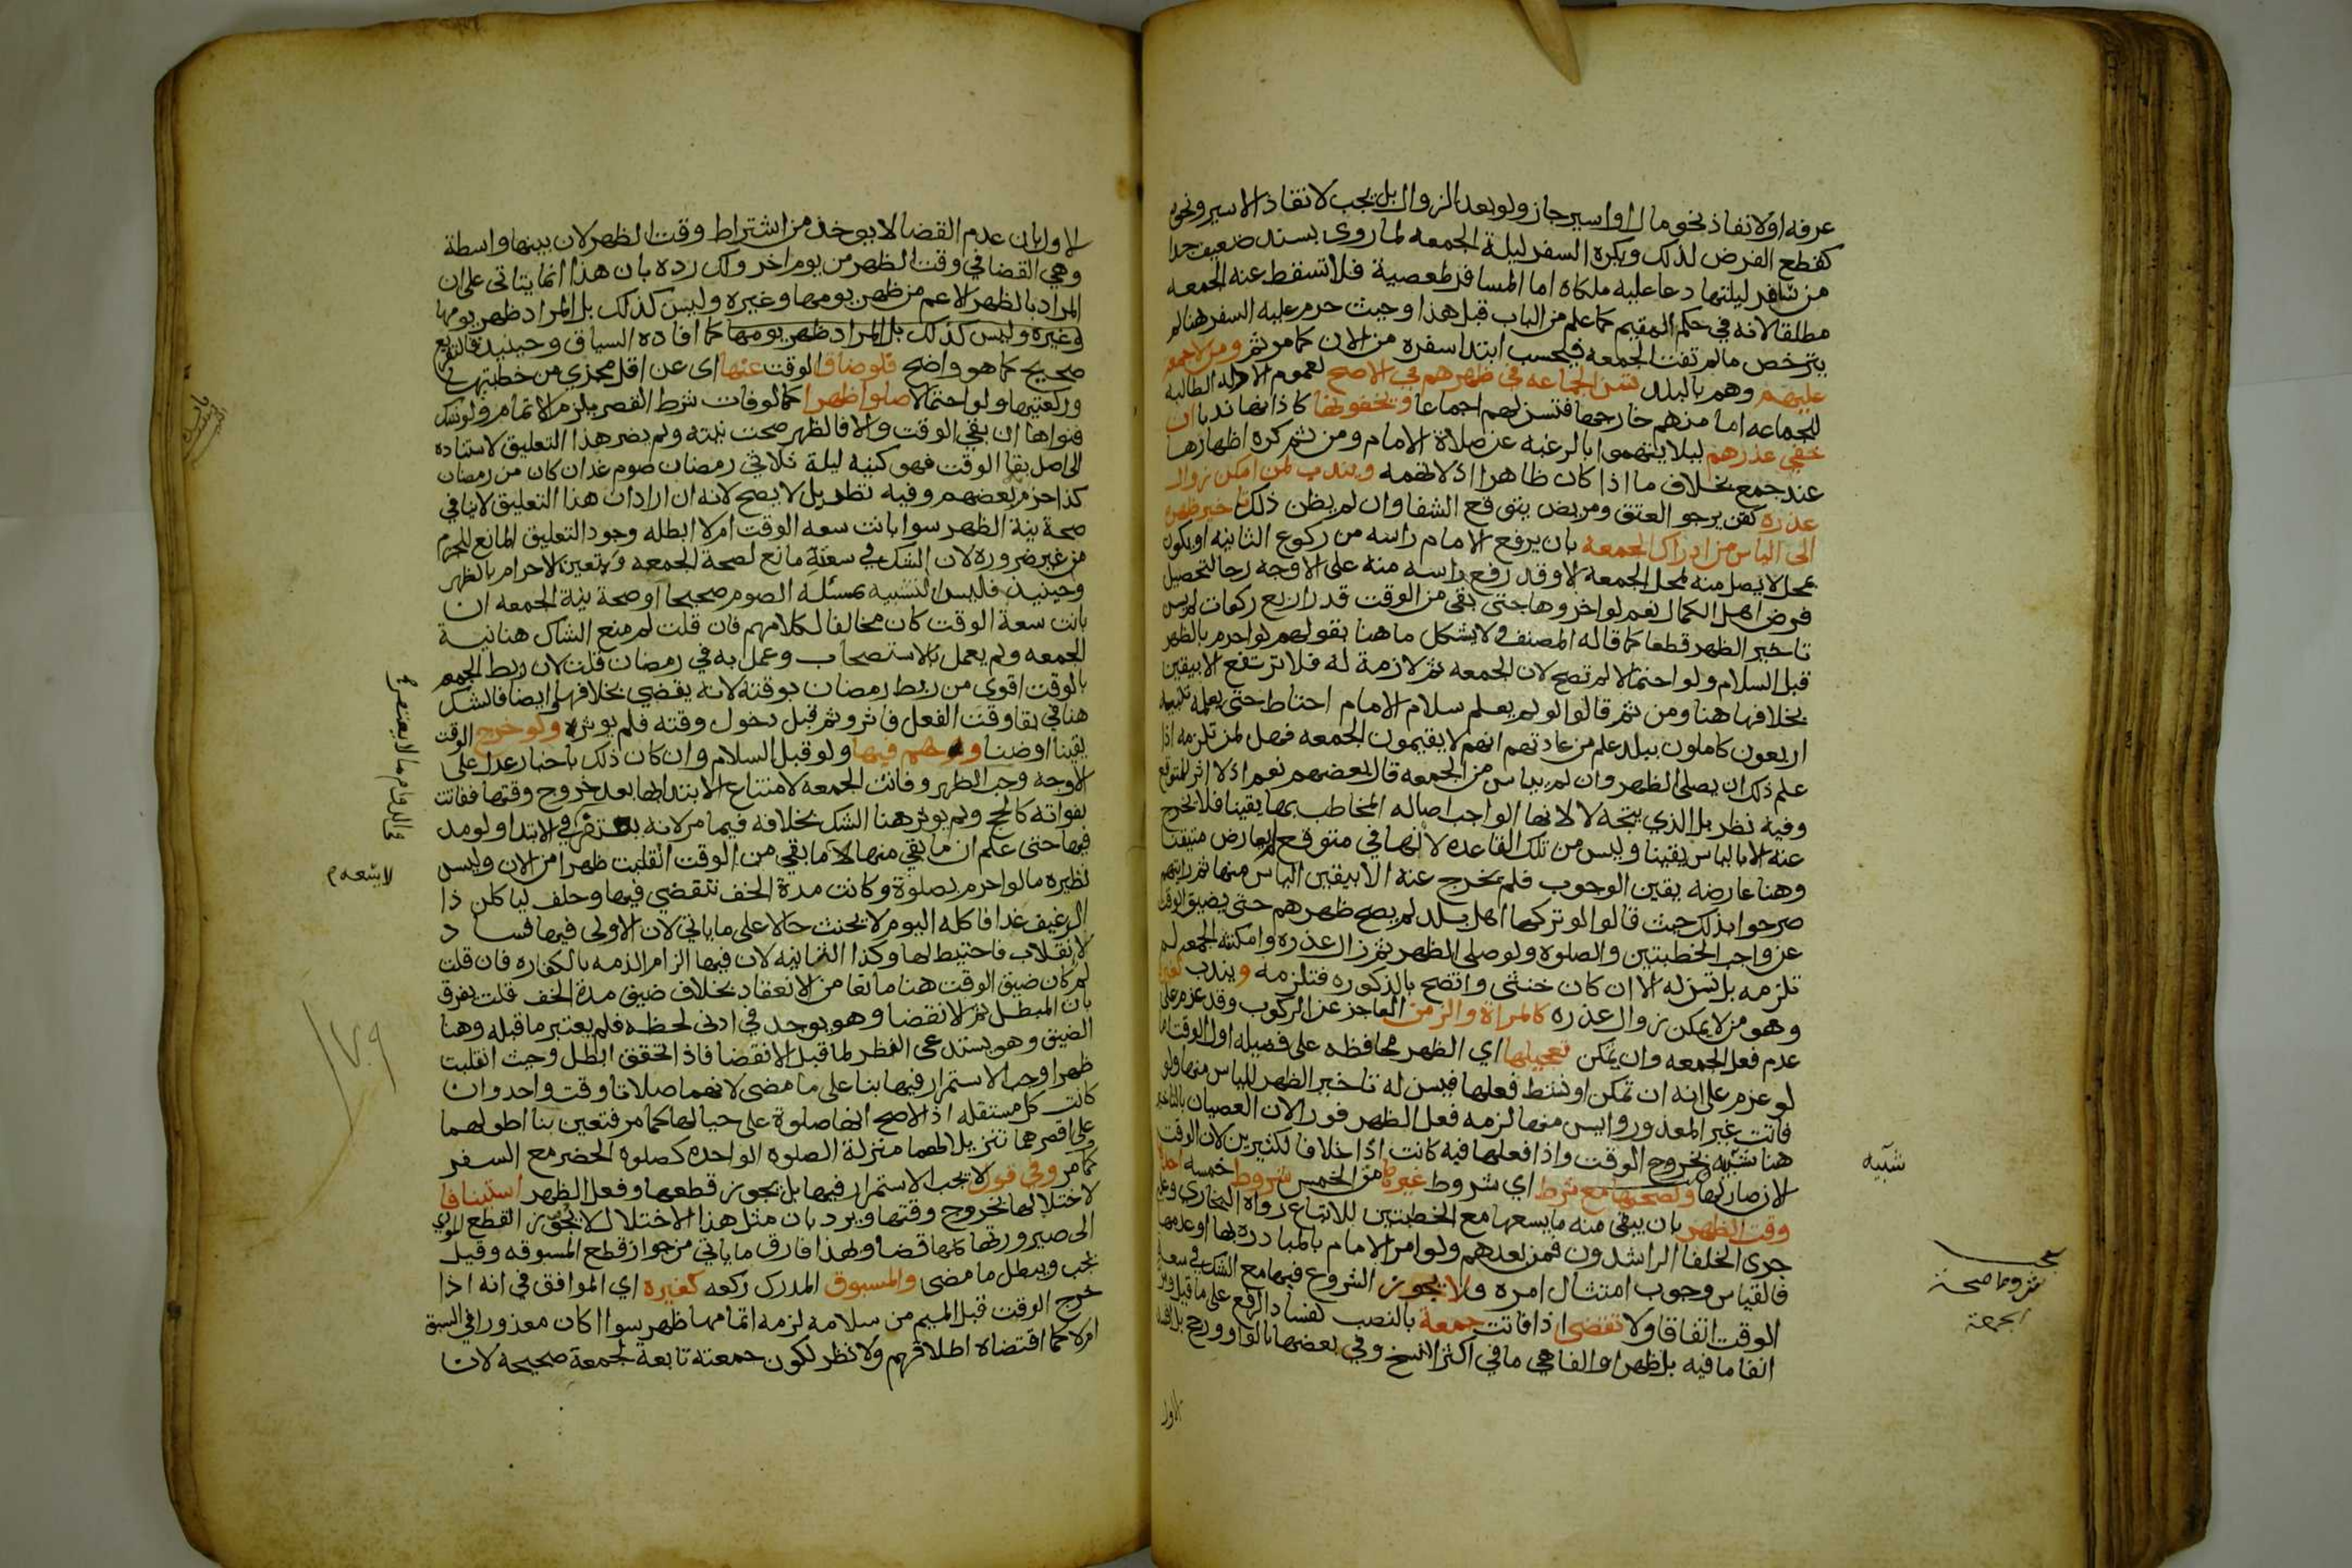 عرفه او لانقاذ نحو مال او اسير جاز ولو بعد الزوال بل يجب لانقاذ الاسير ونحوه
كقطع الفرض لذلك ويكره السفر ليلة الجمعه لما روى بسند ضعيف جدا
من سافر ليلتها دعا عليه ملكاه اما المسافر لمعصية فلا تسقط عنه الجمعه
مطلقا لانه في حكم المقيم كما علم من الباب قبل هذا وحيث حرم عليه السفر هنا لم
يترخص ما لم تفت الجمعه فيحسب ابتدا سفره من الان كما مر ثم ومن لا جمعه
عليهم وهم بالبلد تسن الجماعه في ظهرهم في الاصح لعموم الادله الطالبه
للجماعه اما من هم خارجها فتسن لهم اجماعا ويخفونها كاذانها ندبا ان
خفي عذرهم ليلا يتهموا بالرغبه عن صلاة الامام ومن ثم كره اظهارها
عند جمع بخلاف ما اذا كان ظاهرا اذ لا تهمه ويندب لمن امكن زوال
عذره كقن يرجو العتق ومريض يتوقع الشفا وان لم يظن ذلك تاخير ظهره
الى الياس من ادراك الجمعه بان يرفع الامام راسه من ركوع الثانيه او يكون
بمحل لا يصل منه لمحل الجمعه الا وقد رفع راسه منه على الاوجه رجا لتحصيل
فرض اهل الكمال نعم لو اخروها حتى بقي من الوقت قدر اربع ركعات لم يسن
تاخير الظهر قطعا كما قاله المصنف ولا يشكل ما هنا بقولهم لو احرم بالظهر
قبل السلام ولو احتمالا لم تصح لان الجمعه ثم لازمة له فلا ترتفع الا بيقين
بخلافها هنا ومن ثم قالوا لو لم يعلم سلام الامام احتاط حتى يعلمه تنبيه
اربعون كاملون ببلد علم من عادتهم انهم لا يقيمون الجمعه فهل لمن تلزمه اذا
علم ذلك ان يصلى الظهر وان لم يياس من الجمعه قال بعضهم نعم اذ لا اثر للمتوقع
وفيه نظر بل الذي يتجه لا لانها الواجب اصاله المخاطب بها يقينا فلا يخرج
عنه الا بالياس يقينا وليس من تلك القاعده لانها في متوقع لم يعارض متيقنا
وهنا عارضه يقين الوجوب فلم يخرج عنه الا بيقين الياس منها ثم رايتهم
صرحوا بذلك حيث قالوا لو تركها اهل بلد لم يصح ظهرهم حتى يضيق الوقت
عن واجب الخطبتين والصلوه ولو صلى الظهر ثم زال عذره وامكنته الجمعه لم
تلزمه بل تسن له الا ان كان خنثى واتضح بالذكوره فتلزمه ويندب لغيره
وهو من لا يمكن زوال عذره كالمراة والزمن العاجز عن الركوب وقد عزم على
عدم فعل الجمعه وان تمكن تعجيلها اي الظهر محافظه على فضيله اول الوقت اما
لو عزم على انه ان تمكن او نشط فعلها فيسن له تاخير الظهر للياس منها ولو
فاتت غير المعذور وايس منها لزمه فعل الظهر فورا لان العصيان بالتاخير
هنا شبيه بخروج الوقت واذا فعلها فيه كانت اذا خلافا لكثيرين لان الوقت
الان صار لها ولصحتها مع شرط اي شروط غيرها من الخمس شروط خمسه احدها
وقت الظهر بان يبقى منه ما يسعها مع الخطبتين للاتباع رواه البخاري وعليه
جرى الخلفا الراشدون فمن بعدهم ولو امر الامام بالمبادره بها او عدمها
فالقياس وجوب امتثال امره ولا يجوز الشروع فيها مع الشك في سعة
الوقت اتفاقا ولا تقضى اذا فاتت جمعة بالنصب لفساد الرفع على ما قيل
انفا ما فيه بل ظهرا والفا هي ما في اكثر النسخ وفي بعضها بالواو ورجح
الاول
شبيه
شروط صحة
الجمعة
الاول بان عدم القضا لا يوخذ من اشتراط وقت الظهر لان بينها واسطة
وهي القضا في وقت الظهر من يوم اخر ولك رده بان هذا انما يتاتى على ان
المراد بالظهر الاعم من ظهر يومها وغيره وليس كذلك بل المراد ظهر يومها
وغيره وليس كذلك بل المراد ظهر يومها كما افاده السياق وحينيذ فالتفريع
صحيح كما هو واضح فلو ضاق الوقت عنها اى عن اقل مجزي من خطبتيها
وركعتيها ولو احتمالا صلوا ظهرا كما لو فات شرط القصر يلزم الاتمام ولو شك
فنواها ان بقي الوقت والا فالظهر صحت نيته ولم يضر هذا التعليق لاستناده
الى اصل بقا الوقت فهو كنية ليلة ثلاثي رمضان صوم غد ان كان من رمضان
كذا جزم بعضهم وفيه نظر بل لا يصح لانه ان اراد ان هذا التعليق لا ينافي
صحة نية الظهر سوا بانت سعه الوقت ام لا ابطله وجود التعليق المانع للجزم
من غير ضروره لان الشك في سعته مانع لصحة الجمعه ويتعين الاحرام بالظهر
وحينيذ فليس التشبيه بمسئلة الصوم صحيحا او صحة نية الجمعه ان
بانت سعة الوقت كان مخالفا لكلامهم فان قلت لم منع الشك هنا نية
الجمعه ولم يعمل بالاستصحاب وعمل به في رمضان قلت لان ربط الجمعه
بالوقت اقوى من ربط رمضان بوقته لانه يقضي بخلافها وايضا فالشك
هنا في بقا وقت الفعل فاثر وثم في دخول وقته فلم يوثر ولو خرج الوقت
يقينا او ظنا وهم فيها ولو قبل السلام وان كان ذلك باخبار عدل على
الاوجه وجب الظهر وفاتت الجمعه لامتناع الابتدا بها بعد خروج وقتها ففاتت
بفواته كالحج ولم يوثر هنا الشك بخلافه فيما مر لانه يغتفر في الابتدا ولو مد
فيها حتى علم ان ما بقي منها لا ما بقي من الوقت انقلبت ظهرا من الان وليس
نظيره ما لو احرم بصلوة وكانت مدة الخف تنقضي فيها وحلف لياكلن ذا
الرغيف غدا فاكله اليوم لا يحنث حالا على ما ياتي لان الاولى فيها فساد
لا انقلاب فاحتيط لها وكذا الثانيه لان فيها الزام الذمه بالكفاره فان قلت
لم كان ضيق الوقت هنا مانعا من الانعقاد بخلاف ضيق مدة الخف قلت يفرق
بان المبطل ثم الانقضا وهو يوجد في ادنى لحظه فلم يعتبر ما قبله وهنا
الضيق وهو يستدعي النظر لما قبل الانقضا فاذا تحقق ابطل وحيث انقلبت
ظهرا وجب الاستمرار فيها بنا على ما مضى لانهما صلاتا وقت واحد وان
كانت كل مستقله اذ الاصح انها صلوة على حيالها كما مر فتعين بنا اطولهما
على اقصرهما تنزيلا لهما منزلة الصلوه الواحده كصلوه الحضر مع السفر
كما مر وفي قول لا يجب الاستمرار فيها بل يجوز قطعها وفعل الظهر استينافا
لاختلالها بخروج وقتها ويرد بان مثل هذا الاختلال لا يجوز القطع المودي
الى صيرورتها كلها قضا ولهذا فارق ما ياتي من جواز قطع المسبوقه وقيل
يجب ويبطل ما مضى والمسبوق المدرك ركعه كغيره اي الموافق في انه اذا
خرج الوقت قبل الميم من سلامه لزمه اتمامها ظهرا سوا اكان معذورا في السبق
ام لا كما اقتضاه اطلاقهم ولا نظر لكون جمعته تابعة لجمعة صحيحه لان
لا يسعه م